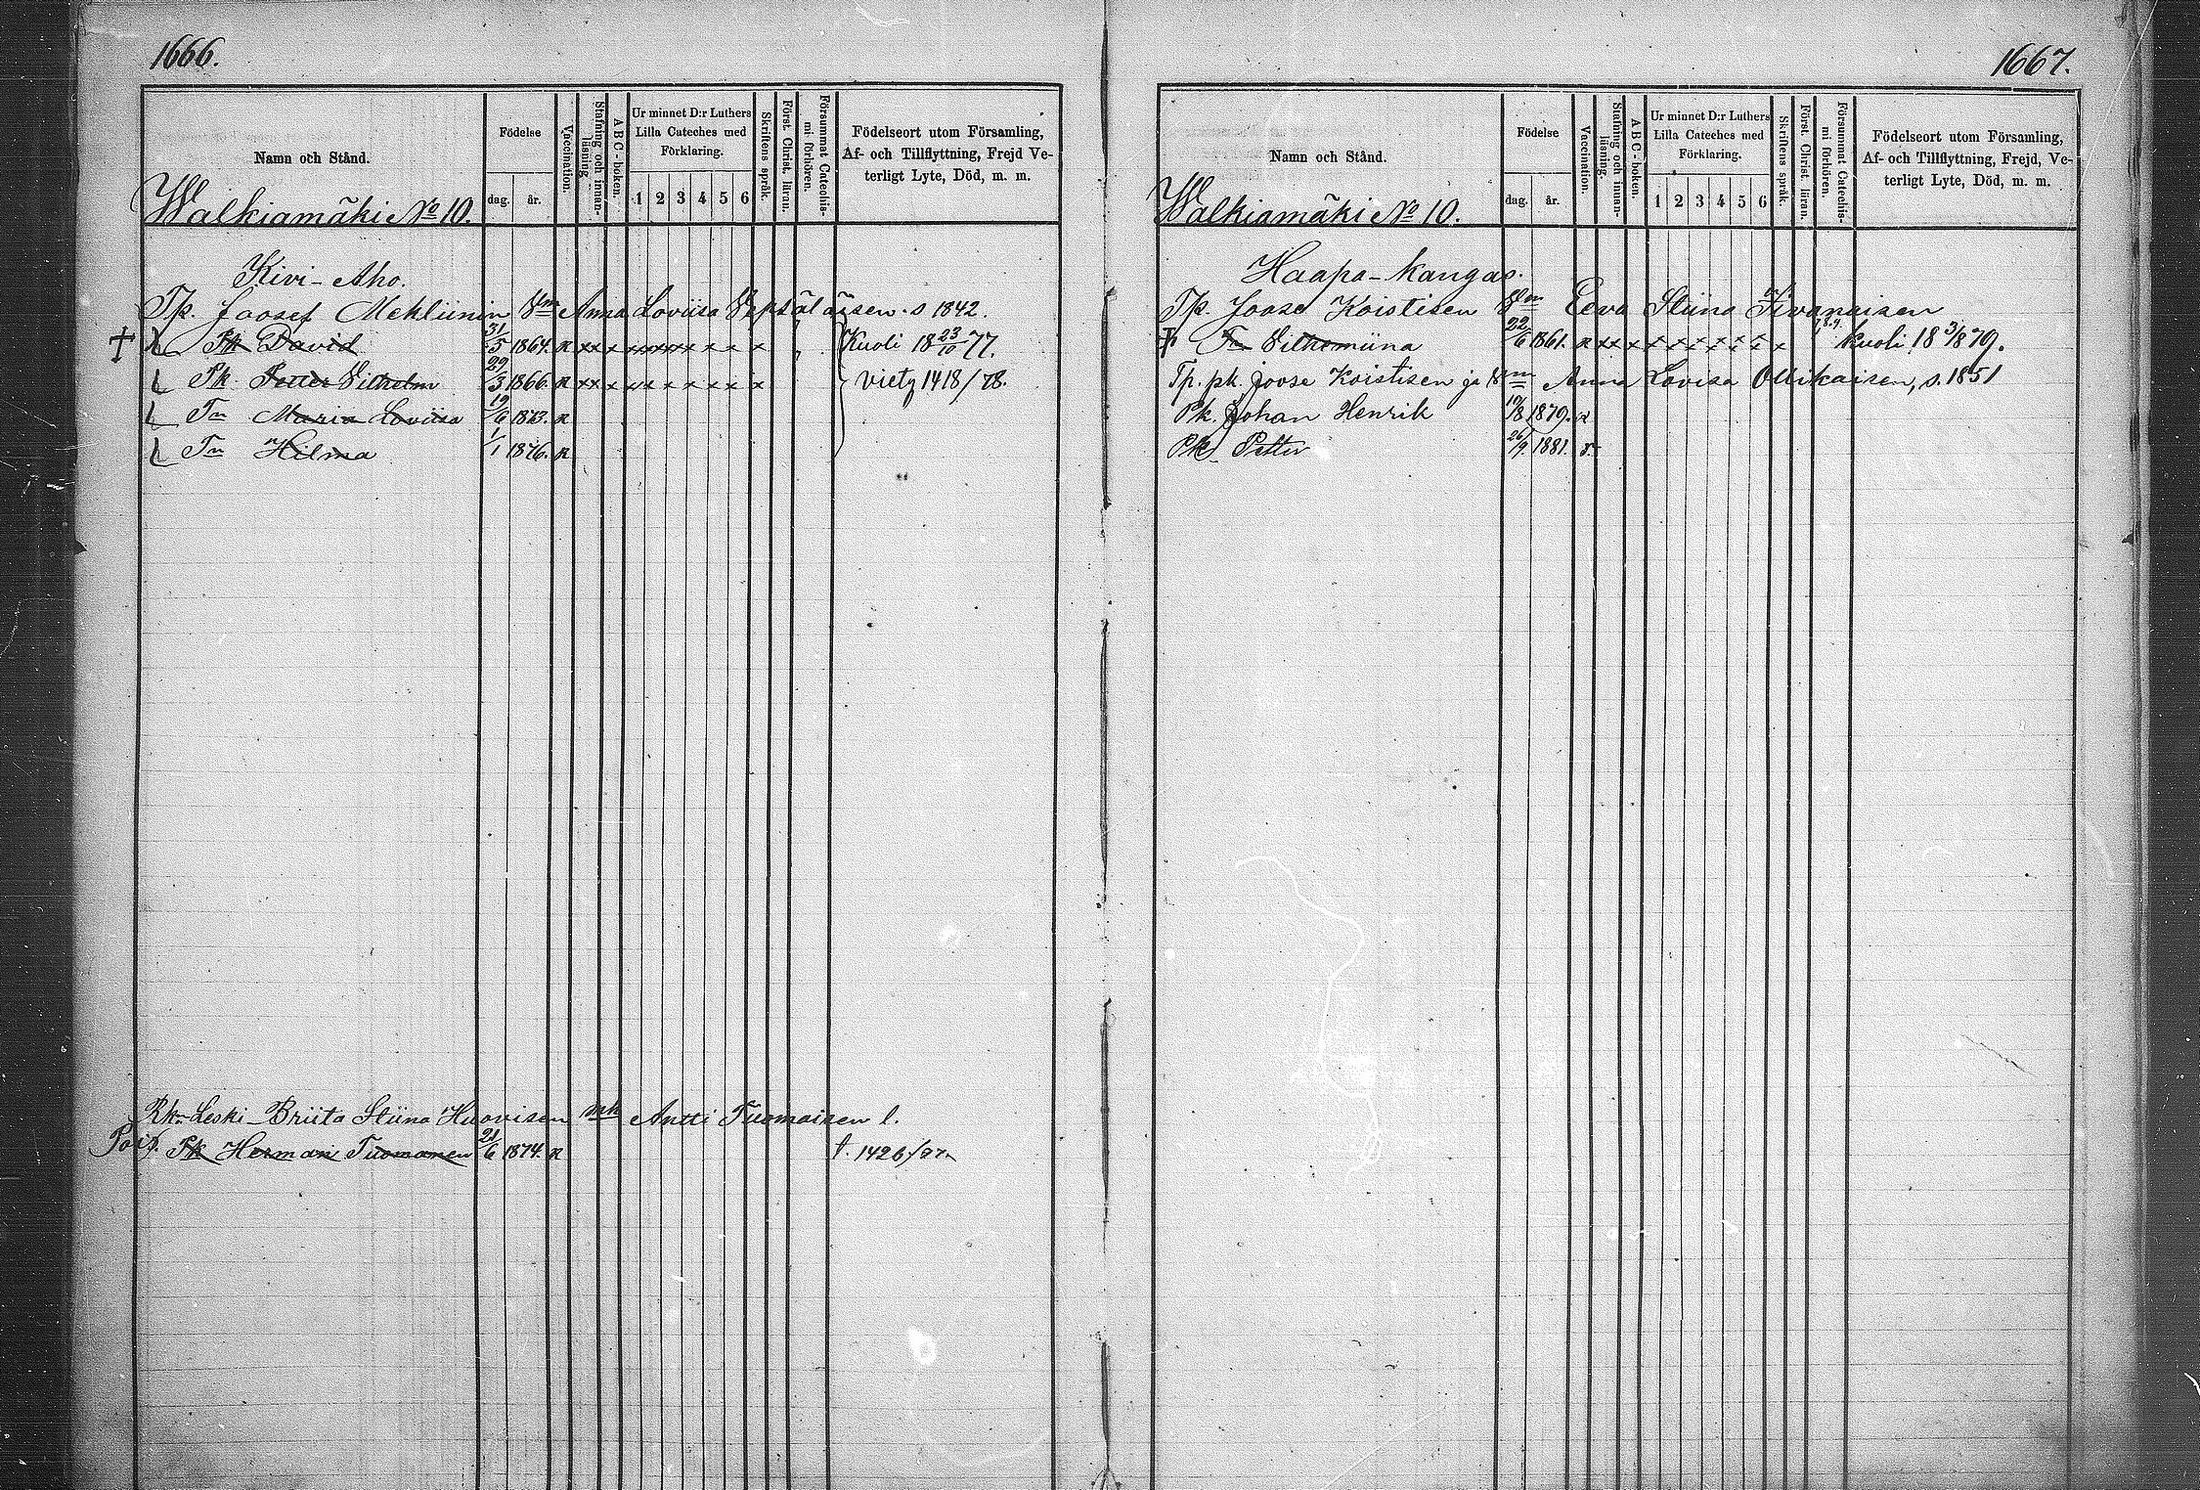 1666.
Namn och Stånd.
Födelse
dag. år.
Vaccination.
Stafning och innan-läsning.
A B C-boken.
Ur minnet D:r Luthers Lilla Cateches med Förklaring.
1 2 3 4 5 6
Skriftens språk.
Först. Christ. läran.
Försummat Catechis-mi förhören.
Födelseort utom Församling,
Af- och Tillflyttning, Frejd Ve-
terligt Lyte, Död, m. m.
Walkiamäki No 10.
Kivi-Aho.
Tp. Joosef Mekliinin Vm Anna Loviisa s 1842.
† Pk David 31/5 1864. x x x x x x x x x x x x Kuoli 18 23/10 77.
Pk. Petter Vilhelm 29/3 1866. x x x x x x x x x x x viety 1418/78.
Tr Maria Loviisa 19/6 1873. x
Tr Hilma 1/1 1876. x
Rk. Leski Briita Stiina Huovisen mk Antti Tuomaisen l.
Pois. Pk Herman Tuomainen 21/6 1874. x
1667.
Namn och Stånd.
Födelse
dag. år.
Vaccination.
Stafning och innan-läsning.
A B C-boken.
Ur minnet D:r Luthers Lilla Cateches med Förklaring.
1 2 3 4 5 6
Skriftens språk.
Först. Christ. läran.
Försummat Catechis-mi förhören.
Födelseort utom Församling,
Af- och Tillflyttning, Frejd, Ve-
terligt Lyte, Död, m. m.
Walkiamäki No 10.
Haapa-kangas.
Tp. Joose Koistisen Vm Eeva Stiina
† Tr Vilhemiina 22/6 1861. x x x x x x x x x x x kuoli 18 3/8 79.
Tp. pk. Joose Koistisen ja Vm Anna Lovisa Ollikaisen, s. 1851
Pk. Johan Henrik 19/8 1879. x
Pk. Petter 26/9 1881.